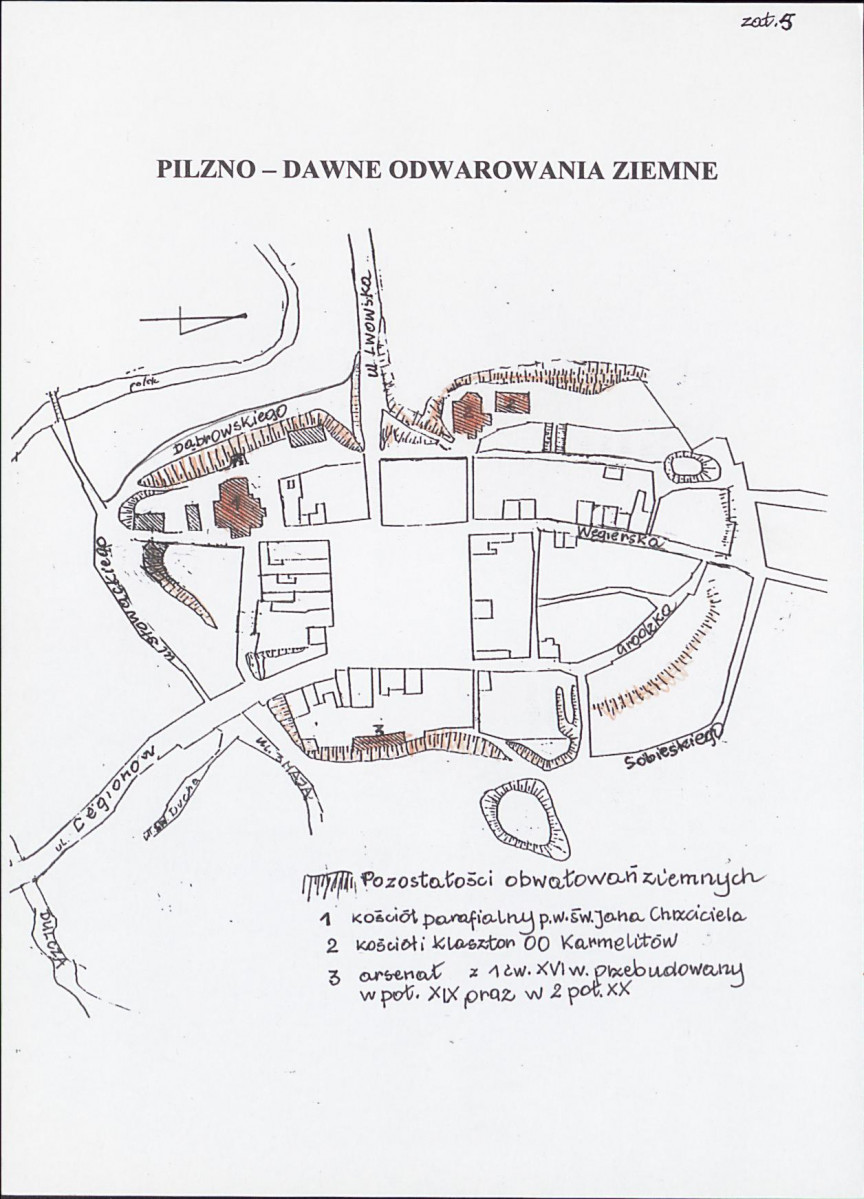 zał. 5
PILZNO – DAWNE ODWAROWANIA ZIEMNE
ul. Lwowska
potok
Dąbrowskiego
2
1
ul. Słowackiego
Węgierska
Grodzka
Sobieskiego
3
ul. 3 MAJA
ul. Św. Ducha
ul. Legionów
Dulcza
Pozostałości obwałowań ziemnych
1 kościół parafialny p.w. św. Jana Chrzciciela
2 kościół i klasztor OO Karmelitów
3 arsenał z 1 ćw. XVI w. przebudowany
w poł. XIX oraz w 2 poł. XX